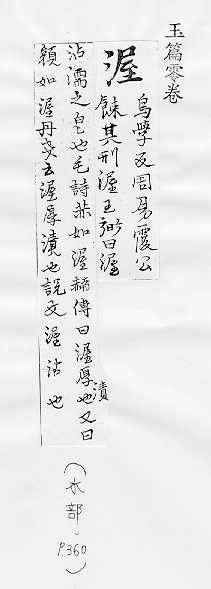 玉篇零卷
渥
烏學反周易覆公
餗其刑渥王弼曰渥
沾濡之皃也毛詩赫如渥赭傳曰渥厚也又曰
漬
顏如渥丹箋云渥厚漬也說文渥沾也
(水部。P.360)